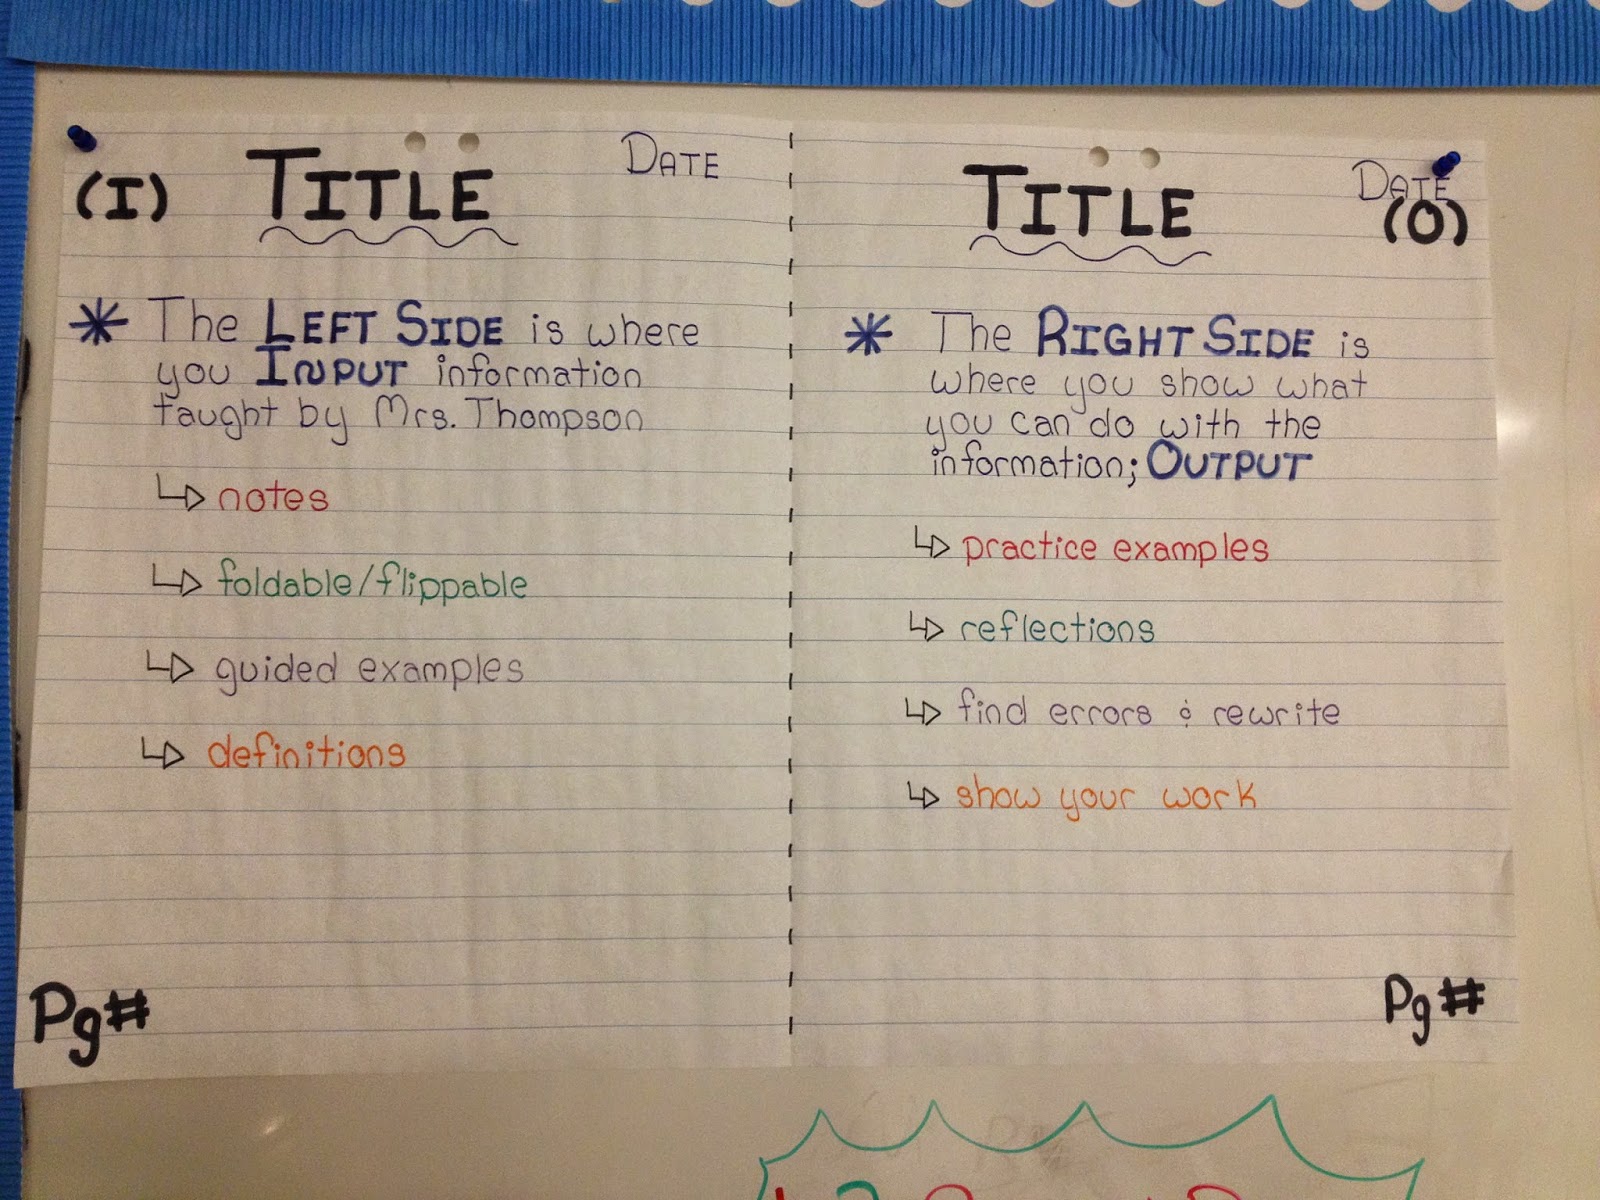 (I) TITLE DATE
* The LEFT SIDE is where
you INPUT information
taught by Mrs. Thompson
↳ notes
↳ foldable/flippable
↳ guided examples
↳ definitions
Pg#
TITLE DATE
(O)
* The RIGHT SIDE is
where you show what
you can do with the
information; OUTPUT
↳ practice examples
↳ reflections
↳ find errors & rewrite
↳ show your work
Pg#